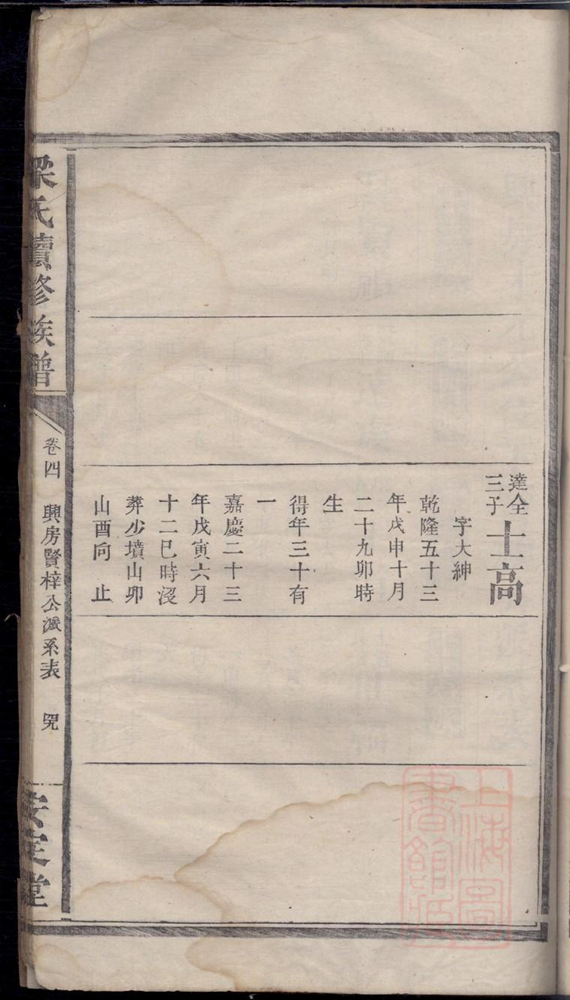 達全
三子
士高
字大紳
乾隆五十三
年戊申十月
二十九卯時
生
得年三十有
一
嘉慶二十三
年戊寅六月
十二巳時沒
葬少墳山卯
山酉向 止
梁氏續修族譜
卷四 興房賢梓公派系表
安定堂
上海圖
書館藏